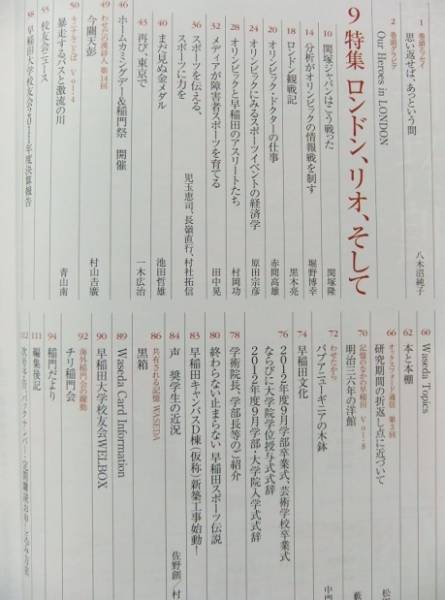 1 巻頭エッセイ
思い返せば、あっという間 八木沼純子
2 巻頭グラビア
Our Heroes in LONDON
9 特集 ロンドン、リオ、そして
10 関塚ジャパンはこう戦った 関塚隆
14 分析がオリンピックの情報戦を制す 堀野博幸
18 ロンドン観戦記 黒木亮
20 オリンピック・ドクターの仕事 赤間高雄
24 オリンピックにみるスポーツイベントの経済学 原田宗彦
28 オリンピックと早稲田のアスリートたち 村岡功
32 メディアが障害者スポーツを育てる 田中晃
36 スポーツを伝える、
スポーツに力を 児玉恵司、長嶺直行、村社拓信
40 まだ見ぬ金メダル 池田哲雄
43 再び、東京で 一木広治
46 ホームカミングデー&稲門祭 開催
49 わせだの漢詩人 第34回
今關天彭 村山吉廣
50 キニナルことば Vol.4
暴走するバスと激流の川 青山南
55 校友会ニュース
58 早稲田大学校友会2011年度決算報告
60 Waseda Topics
62 本と本棚
66
研究期間の折返し点に近づいて 松
70 記憶のなかの早稲田 Vol.8
明治三六年の洋館
72 わせだから
パプアニューギニアの木鉢 中門
74 早稲田文化
76 2012年度9月学部卒業式、芸術学校卒業式
ならびに大学院学位授与式式辞
2012年度9月学部・大学院入学式式辞
78 学術院長、学部長等のご紹介
80 終わらない止まらない 早稲田スポーツ伝説
83 早稲田キャンパスD棟(仮称)新築工事始動!
84 声 奨学生の近況
86 共有される記憶 WASEDA
黒箱 佐野
89 Waseda Card Information
90 早稲田大学校友会WELBOX
92 海外稲門会の躍動
チリ稲門会
94 稲門だより
111 編集後記
112